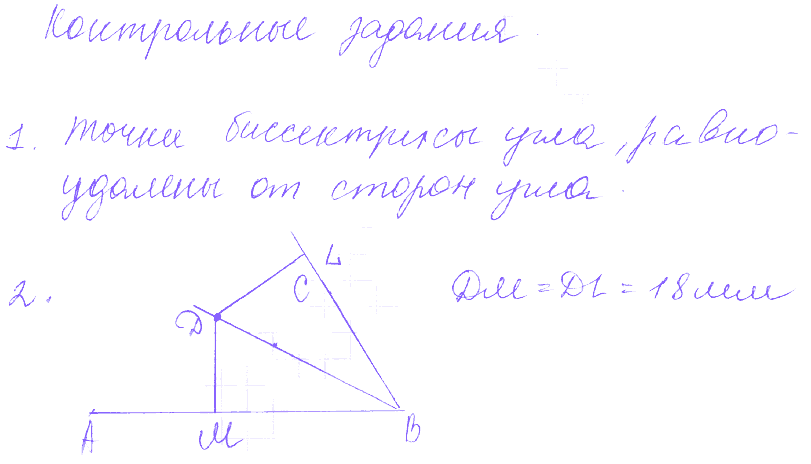 Контрольные задания.
1. точки биссектрисы угла, равно-
удалены от сторон угла.
2.
L
C
DM = DL = 18 мм
D
A
M
B